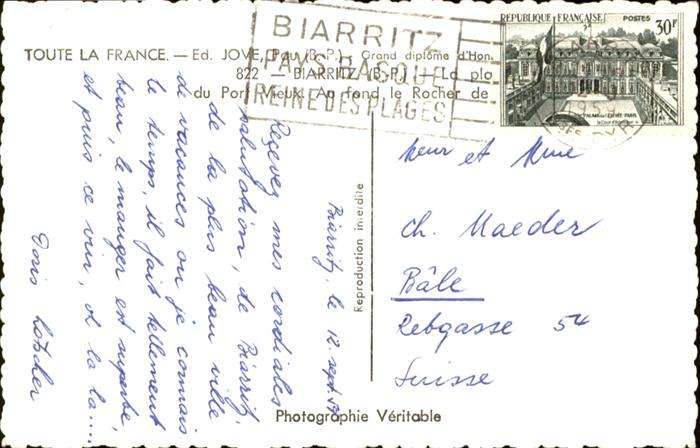 BIARRITZ
PAYS BASQUE
REINE DES PLAGES
REPUBLIQUE FRANÇAISE POSTES 30F
PALAIS DE L'ELYSEE PARIS
1959
TOUTE LA FRANCE. — Ed. JOVE, Pau (B.-P.) — Grand diplôme d'Hon.
822 — BIARRITZ (B.-P.) — La pla
du Port Vieux. Au fond le Rocher de
Biarritz, le 12 sept. 59
Recevez mes cordiales
salutation, de Biarritz,
de la plus beau ville
de vacances ou je connais
le temps, il fait tellement
beau, le manger est superbe,
et puis ce vin, oh la la....
Doris
Reproduction interdite
Meur et Mme
Ch. Maeder
Bâle
Rebgasse 54
Suisse
Photographie Véritable